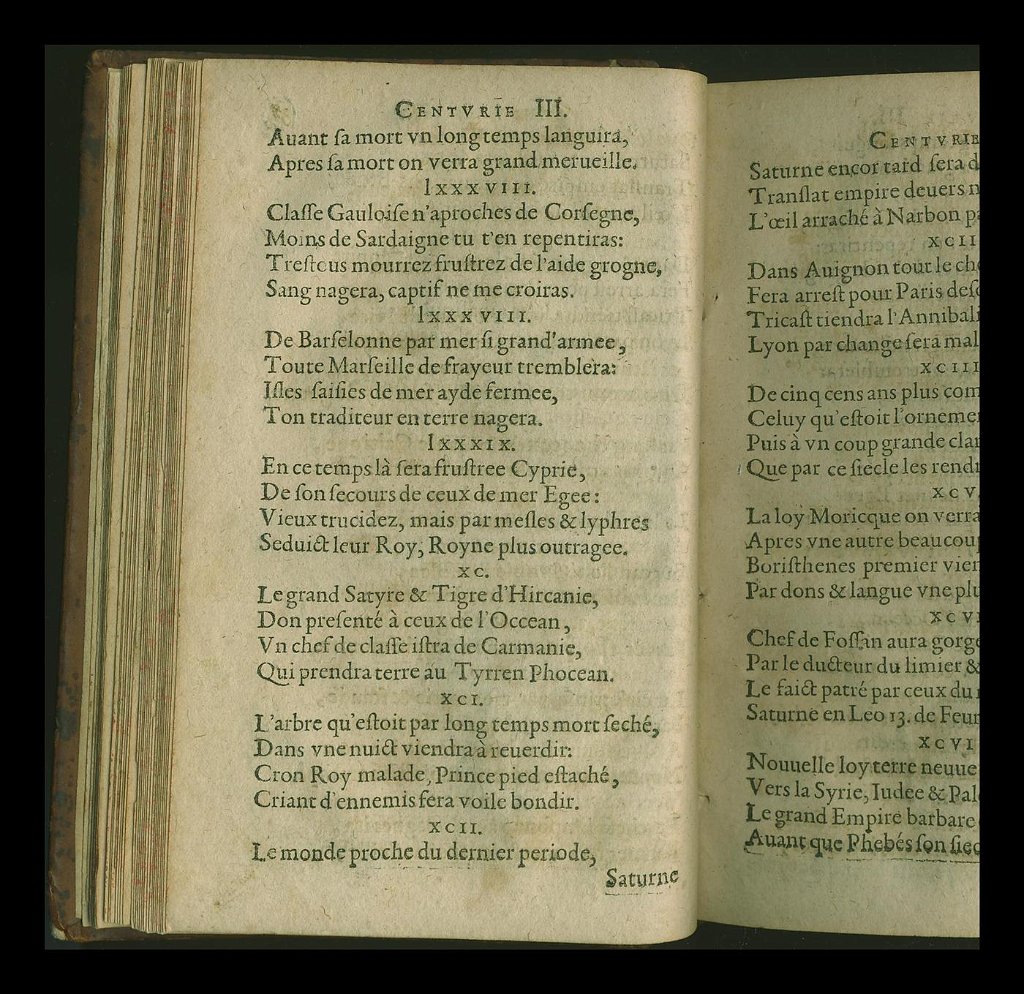 CENTVRIE III.
Auant ſa mort vn long temps languira,
Apres ſa mort on verra grand merueille.
lxxxviii.
Claſſe Gauloiſe n'aproches de Corſegne,
Moins de Sardaigne tu t'en repentiras:
Treſtous mourrez fruſtrez de l'aide grogne,
Sang nagera, captif ne me croiras.
lxxxviii.
De Barſelonne par mer ſi grand'armee,
Toute Marſeille de frayeur tremblera:
Iſles ſaiſies de mer ayde fermee,
Ton traditeur en terre nagera.
lxxxix.
En ce temps là ſera fruſtree Cyprie,
De ſon ſecours de ceux de mer Egee:
Vieux trucidez, mais par meſles & lyphres
Seduict leur Roy, Royne plus outragee.
xc.
Le grand Satyre & Tigre d'Hircanie,
Don preſenté à ceux de l'Occean,
Vn chef de claſſe iſtra de Carmanie,
Qui prendra terre au Tyrren Phocean.
xci.
L'arbre qu'eſtoit par long temps mort ſeché,
Dans vne nuict viendra à reuerdir:
Cron Roy malade, Prince pied eſtaché,
Criant d'ennemis fera voile bondir.
xcii.
Le monde proche du dernier periode,
Saturne
CENTVRIE
Saturne encor tard ſera d
Tranſlat empire deuers n
L'œil arraché à Narbon pa
xcii
Dans Auignon tout le che
Fera arreſt pour Paris deſo
Tricaſt tiendra l'Annibali
Lyon par change ſera mal
xciii
De cinq cens ans plus com
Celuy qu'eſtoit l'orneme
Puis à vn coup grande clar
Que par ce ſiecle les rend
xcv.
La loy Moricque on verra
Apres vne autre beaucoup
Boriſthenes premier vien
Par dons & langue vne plu
xcvi
Chef de Foſſan aura gorge
Par le ducteur du limier &
Le faict patré par ceux du
Saturne en Leo 13. de Feur
xcvi
Nouuelle loy terre neuue
Vers la Syrie, Iudee & Pal
Le grand Empire barbare
Auant que Phebés ſon ſiec